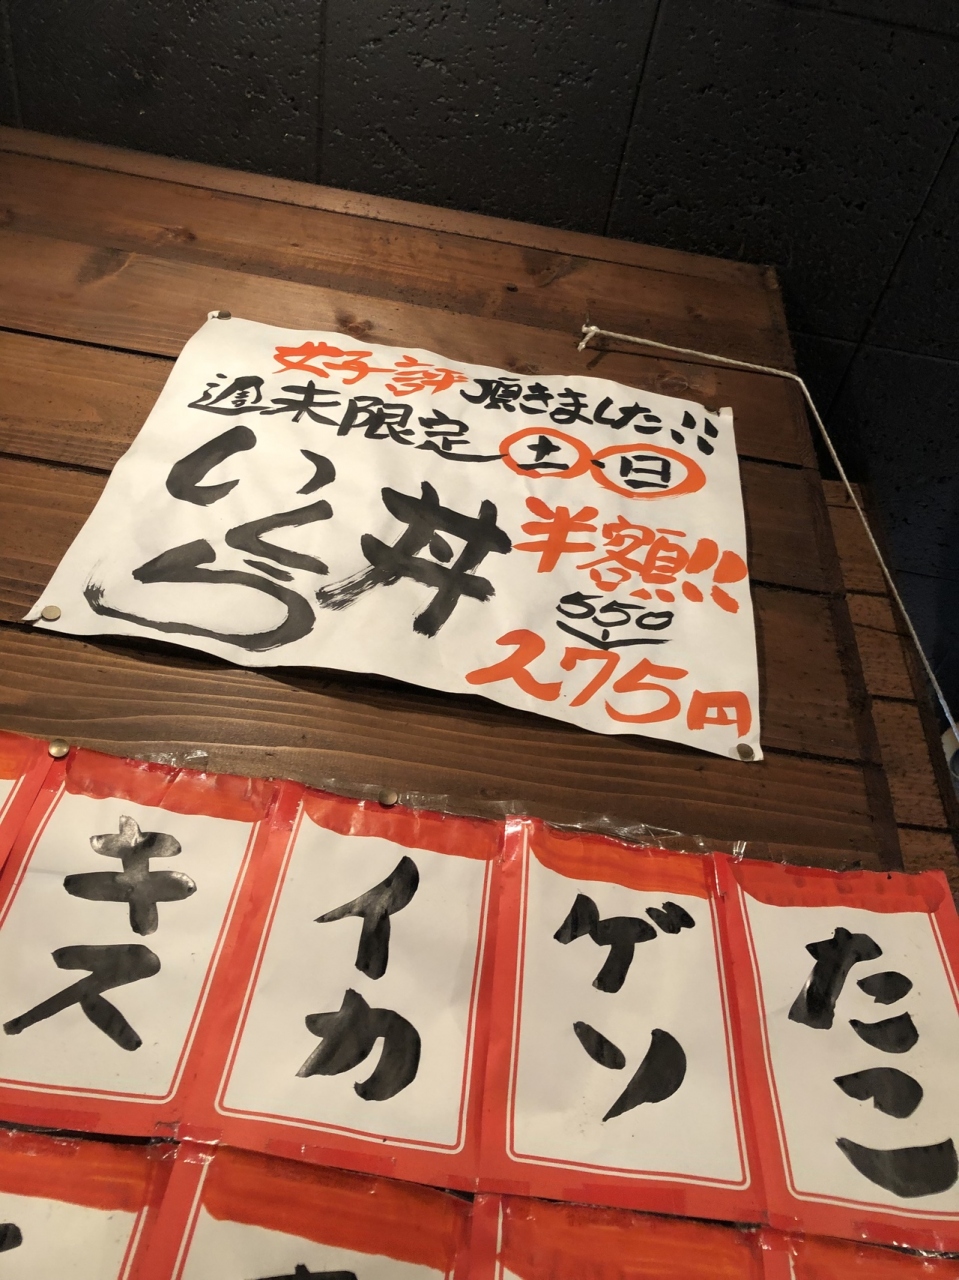 好評頂きました!!
週末限定 土・日
いくら丼
半額!!
550
275円
キス
イカ
ゲソ
たこ